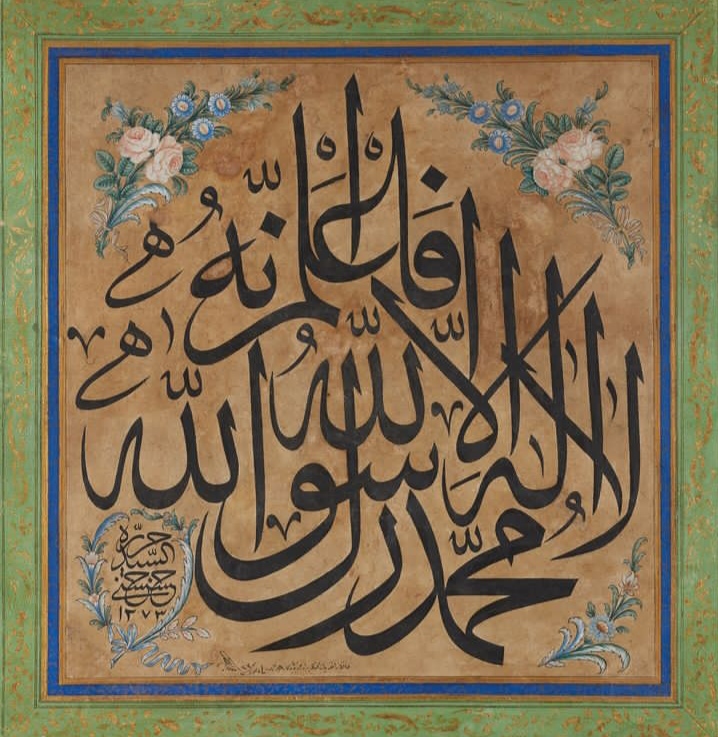 فَاعْلَمْ اَنَّهُ
لا اله الا اللّه
محمّد رسول اللّه
حرّره
السيّد
حسن حسنى
١٢٧٣